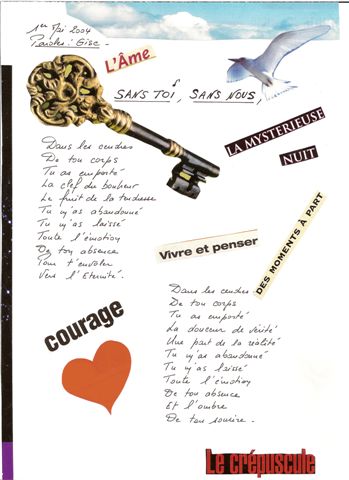 1er Mai 2004
Paroles : Gise
L'Âme
SANS TOI, SANS NOUS,
LA MYSTERIEUSE
NUIT
Dans les cendres
De ton corps
Tu as emporté
La clef du bonheur
Le fruit de la tendresse
Tu m'as abandonné
Tu m'as laissé
Toute l'émotion
De ton absence
Pour t'envoler
Vers l'Eternité.
Vivre et penser
DES MOMENTS À PART
courage
Dans les cendres
De ton corps
Tu as emporté
La douceur de vérité
Une part de la réalité
Tu m'as abandonné
Tu m'as laissé
Toute l'émotion
De ton absence
Et l'ombre
De ton sourire.
Le crépuscule